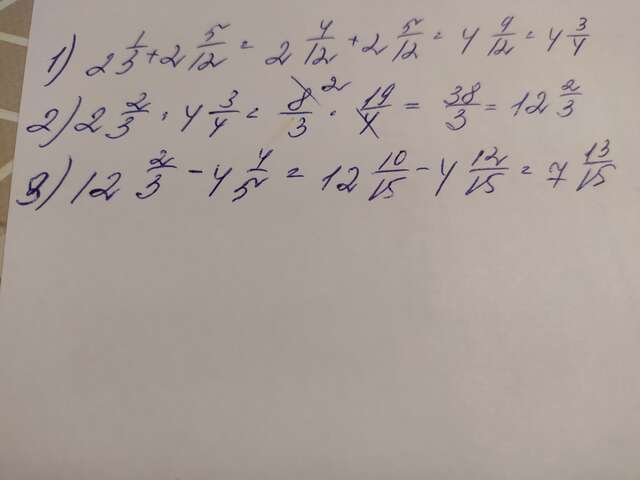 1) 2 1/3 + 2 5/12 = 2 4/12 + 2 5/12 = 4 9/12 = 4 3/4
2) 2 2/3 · 4 3/4 = 8/3 2 · 19/4 = 38/3 = 12 2/3
3) 12 2/3 - 4 4/5 = 12 10/15 - 4 12/15 = 7 13/15